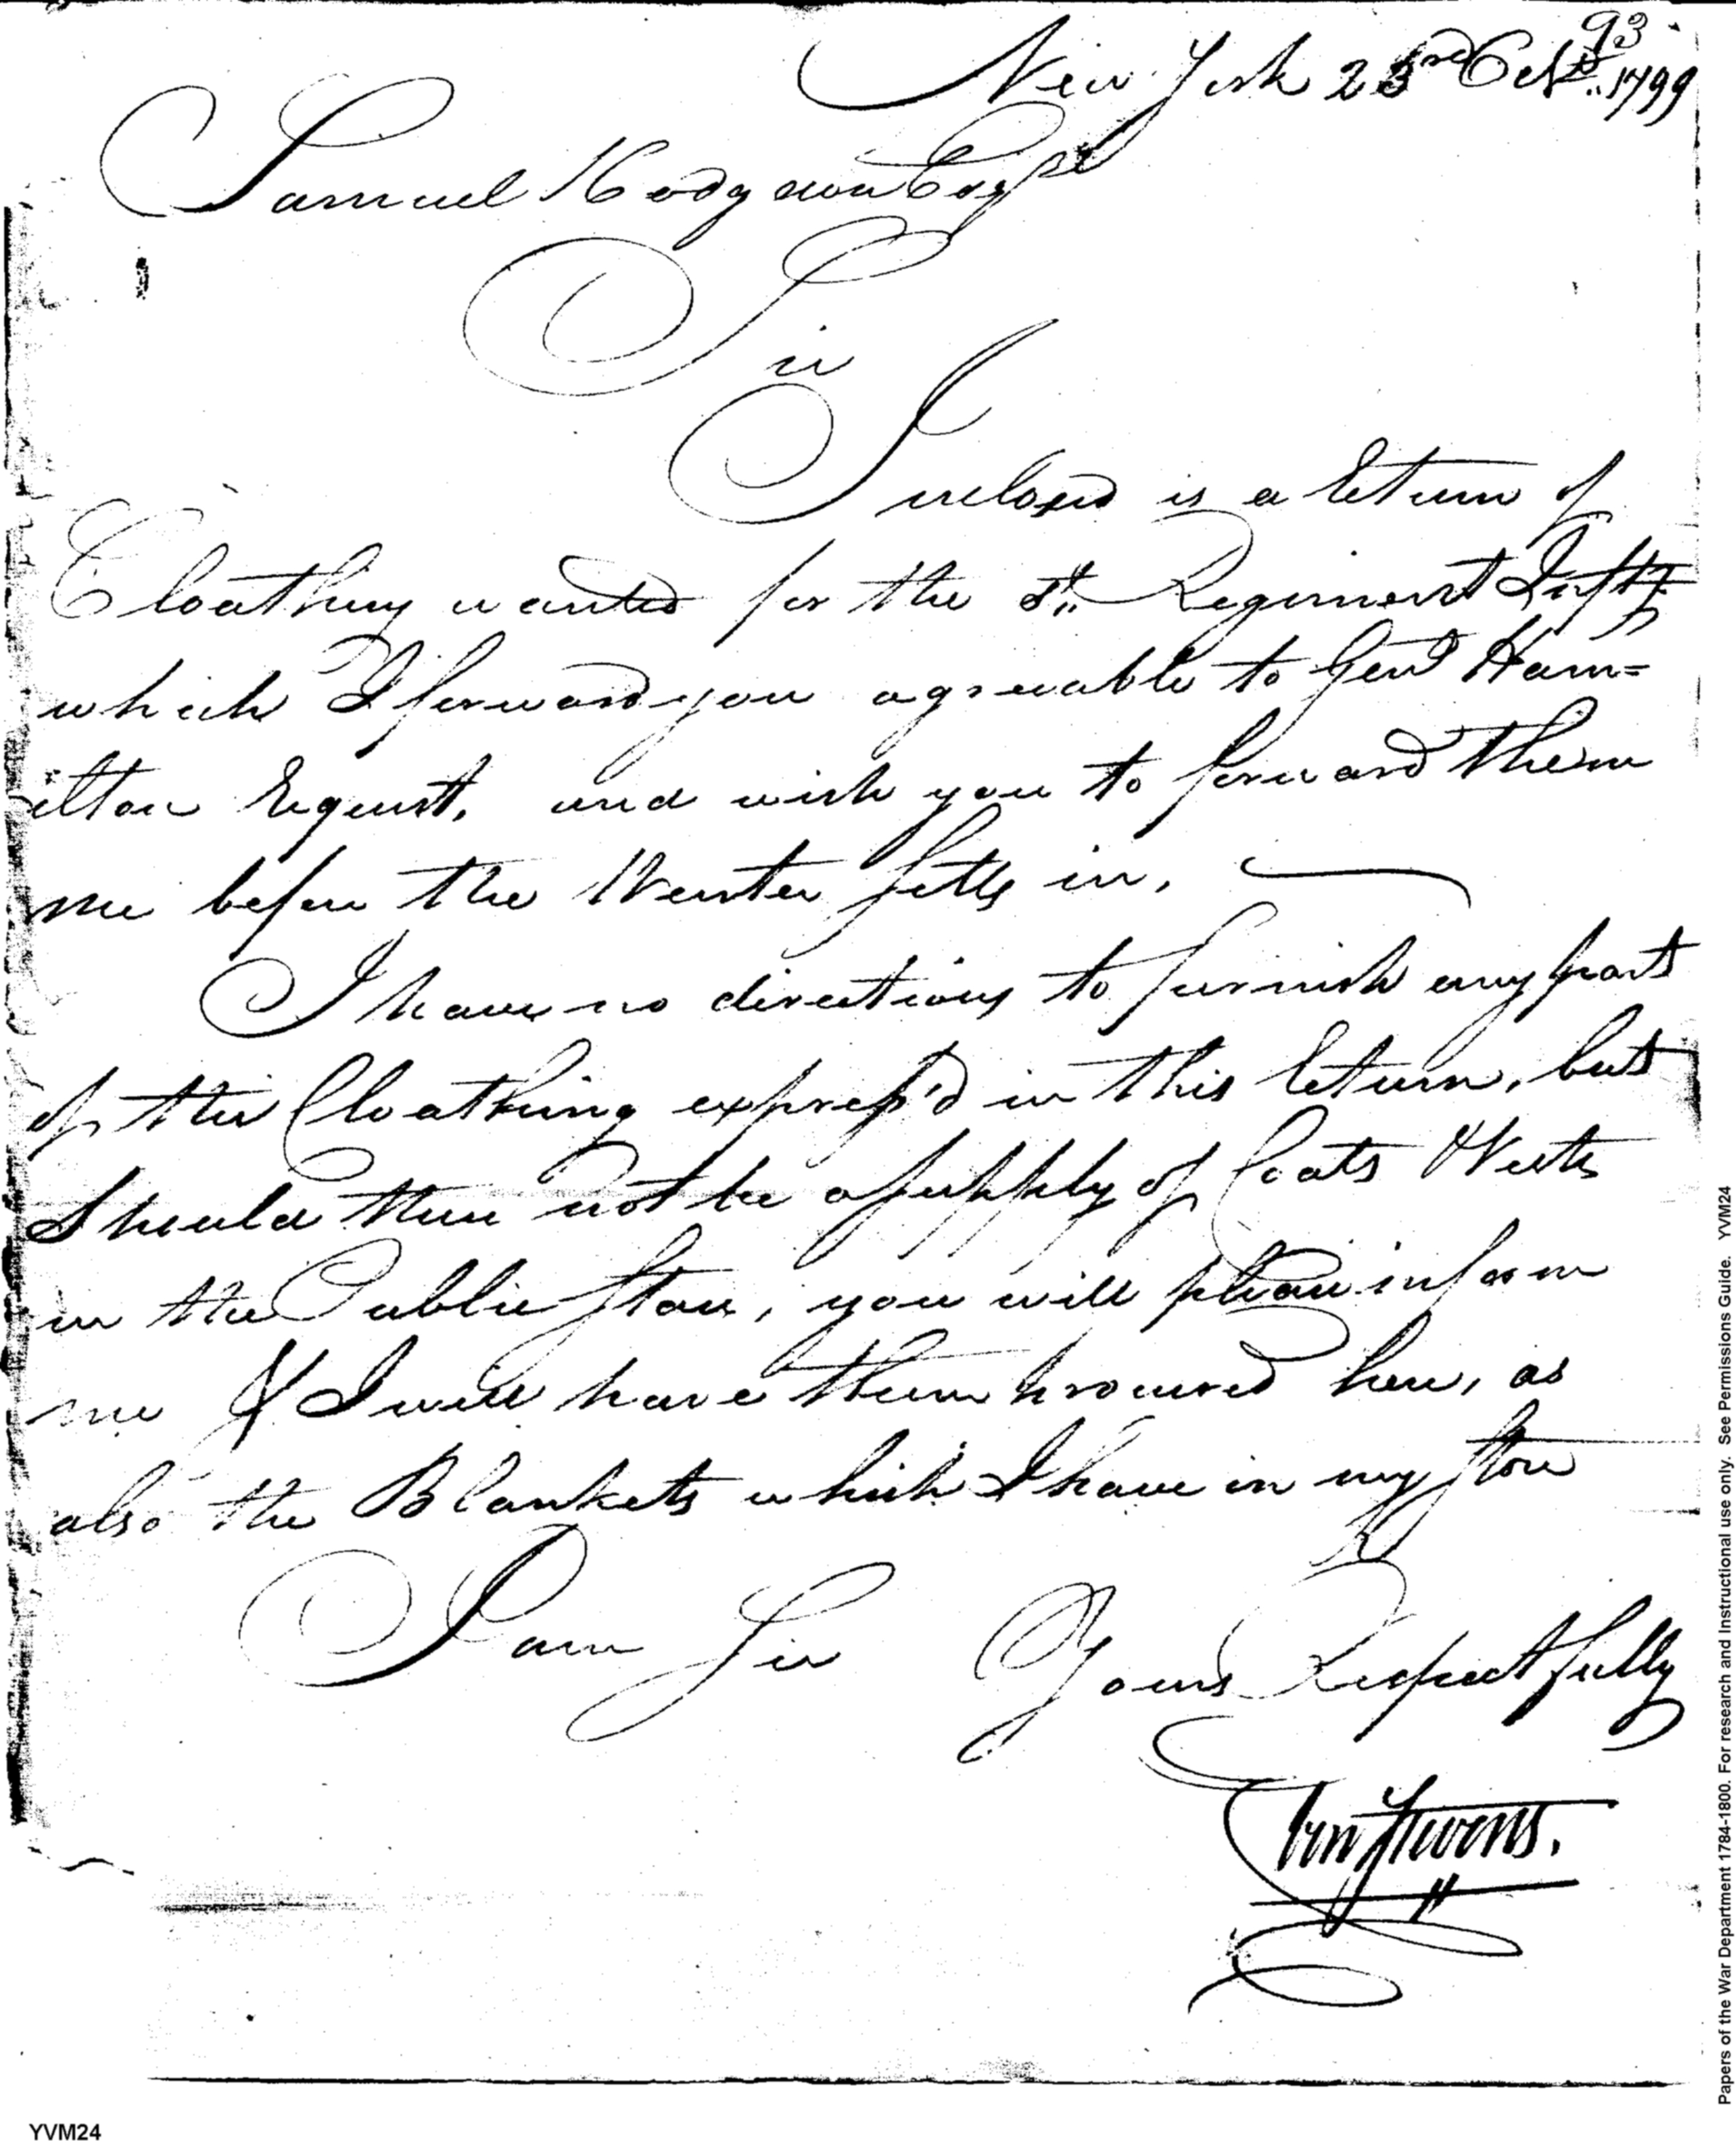 93
New York 23rd Octr 1799
Samuel Hodgsdon Esqr
Sir
Inclosed is a return of
Cloathing wanted for the Regiment Infty
which I forward you agreeable to Genl Ham=
ilton request, and wish you to forward them
me before the Wenter setts in,
I have no directions to furnish any part
of the Cloathing express'd in this return, but
Should there not be a supply of Coats & Vests
in the Public Store, you will please inform
me & I will have them procured here, as
also the Blankets which I have in my Store
I am Sir Yours Respectfully
Ebn Stevens.
YVM24
Papers of the War Department 1784-1800. For research and instructional use only. See Permissions Guide. YVM24